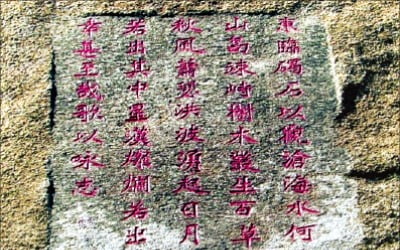 東臨碣石以觀滄海水何
山島竦峙樹木叢生百草
秋風蕭瑟洪波湧起日月
若出其中星漢燦爛若出
幸甚至哉歌以咏志